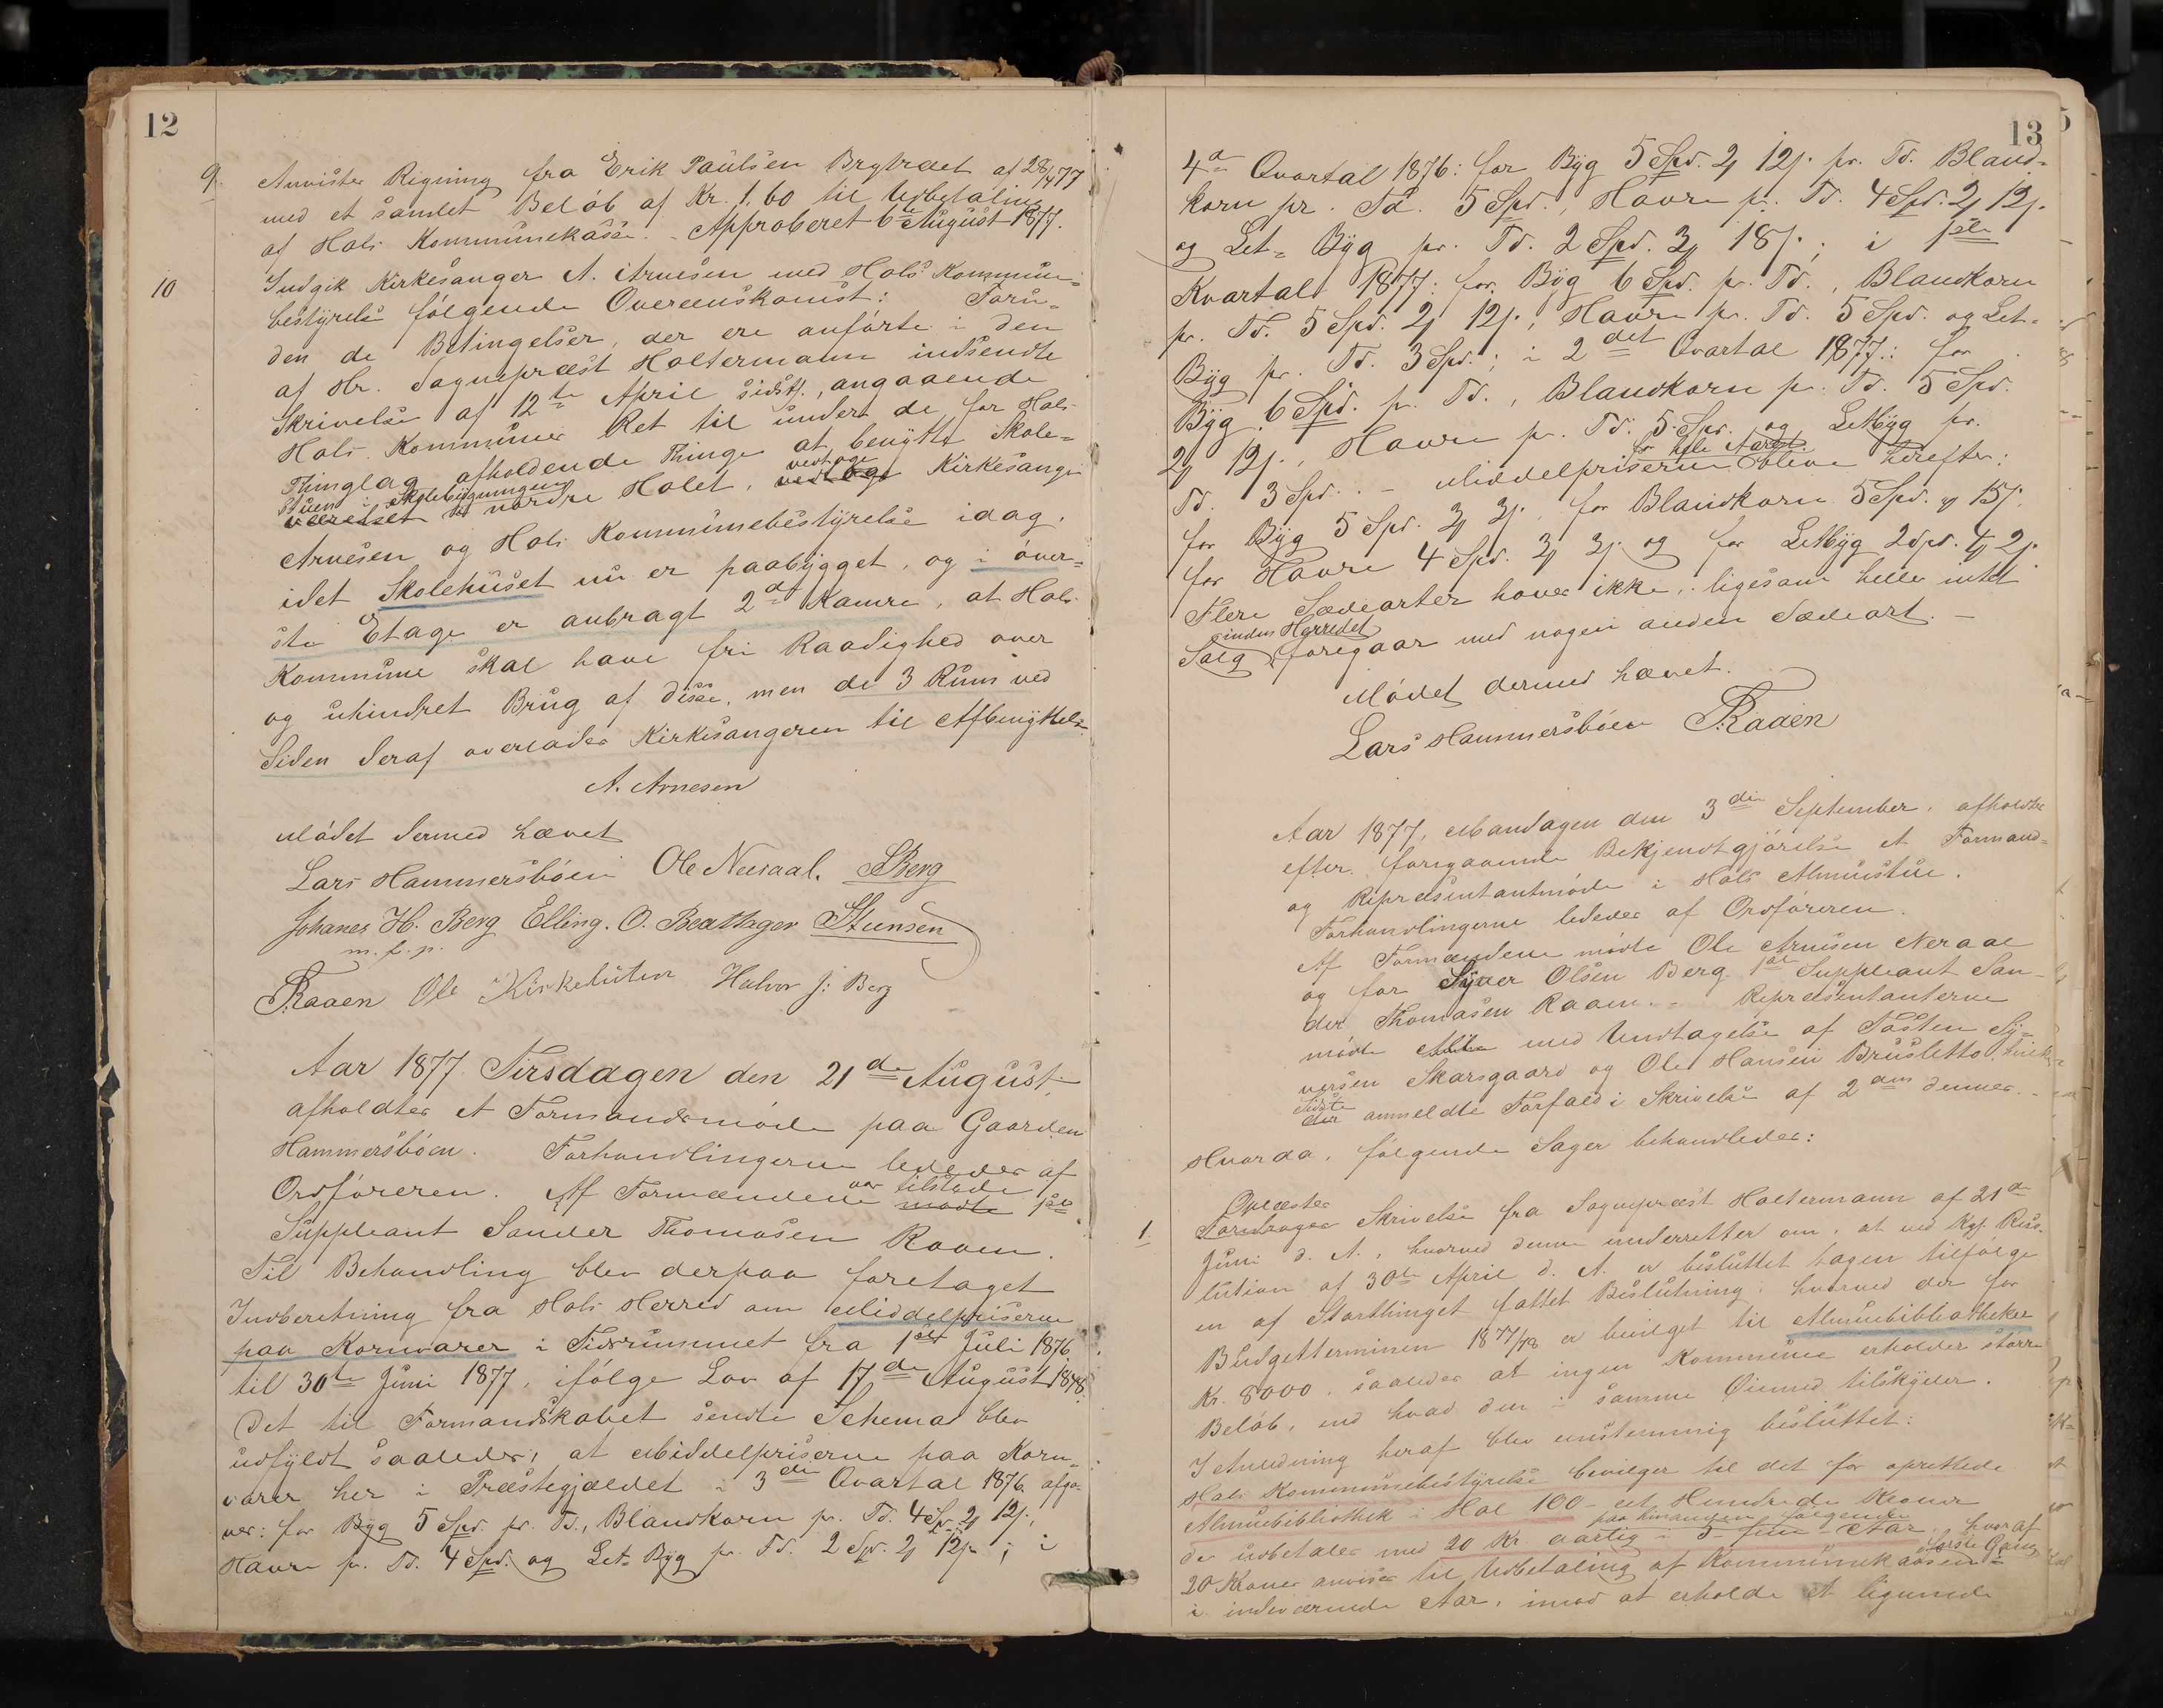 12
9. Anviste Regning fra Erik Paulsen Brytrået af 28/7 77
med et samlet Beløb af Kr. 1,60 til Udbetaling
af Hols Kommunekasse. Approberet 6te August 1877.
10 Indgik Kirkesanger A. Arnesen med Hols Kommune-
bestyrelse følgende Overenskomst: Foru-
den de Betingelser, der ere anførte i den
af Hr. Sognepræst Holtermann indsendte
Skrivelse af 12te April sidstl., angaaende
Hols Kommunes Ret til under de for Hols
Thinglag afholdende Thinge at benytte Skole-
stuen i Skolebygningen
værelset nordre Holet, vedtoge Kirkesanger
Arnesen og Hols Kommunebestyrelse idag,
idet Skolehuset nu er paabygget, og i øver-
ste Etage er anbragt 2de Kamre, at Hols
Kommune skal have fri Raadighed over
og uhindret Brug af disse, men de 3 Rum ved
Siden deraf overlades Kirkesangeren til Afbenyttelse
A. Arnesen
Mødet dermed hævet
Lars Hammersbøen Ole Neeraal. SBerg
Johanes H. Berg Elling. O. Beathager
m. f. p.
Raaen Ole Kirkeluten Halvor J: Berg
Aar 1877. Tirsdagen den 21de August,
afholdtes et Formandsmøde paa Gaarden
Hammersbøen. Forhandlingerne lededes af
Ordføreren. Af Formændene var tilstede mødte 1ste
Suppleant Sander Thomasen Raaen.
Til Behandling blev derpaa foretaget
Indberetning fra Hols Herred om Middelpriserne
paa Kornvarer i Tidsrummet fra 1ste Juli 1876
til 30te Juni 1877, ifølge Lov af 17de August 1848.
Det til Formandskabet sendte Schema blev
udfyldt saaledes, at Middelpriserne paa Korn-
varer her i Præstegjældet i 3die Qvartal 1876 afga-
ves: for Byg 5 Spd. pr. Td., Blandkorn pr. Td. 4 Spd. 2 12,
Havre pr. Td. 4 Spd. og Let-Byg pr. Td. 2 Spd. 2 12; i
13
4de Qvartal 1876: for Byg 5 Spd. 2 12 pr. Td. Bland-
korn pr. Td. 5 Spd., Havre pr. Td. 4 Spd. 2 12
og Let-Byg pr. Td. 2 Spd. 3 18; i 1ste
Kvartal 1877: for Byg 6 Spd. pr. Td., Blandkorn
pr. Td. 5 Spd. 2 12, Havre pr. Td. 5 Spd. og Let-
Byg pr. Td. 3 Spd.; i 2det Qvartal 1877: for
Byg 6 Spd. pr. Td., Blandkorn pr. Td. 5 Spd.
2 12, Havre pr. Td. 5 Spd. og Letbyg pr.
Td. 3 Spd. - Middelpriserne for hele Aaret bleve herefter:
for Byg 5 Spd. 3 3, for Blandkorn 5 Spd. 15,
for Havre 4 Spd. 3 3 og for Letbyg 2 Spd. 4 2
Flere Sædearter haves ikke, ligesom heller intet
Salg inden Herredet foregaar med nogen anden Sædeart. -
Mødet dermed hævet.
Lars Hammersbøen Raaen
Aar 1877, Mandagen den 3die September, afholdtes
efter foregaaende Bekjendtgjørelse et Formand-
og Repræsentantmøde i Hols Almuestue.
Forhandlingerne lededes af Ordføreren.
Af Formændene mødte Ole Arnesen Neraal
og for Syver Olsen Berg 1ste Suppleant San-
der Thomasen Raaen. - Repræsentanterne
mødte Alle med Undtagelse af Tosten Sy-
versen Skarsgaard og Ole Hansen Brusletto, hvilken
sidste anmeldte Forfald i Skrivelse af 2den dennes.
Hvorda, følgende Sager behandledes:
1. Oplæstes
Foredroges Skrivelse fra Sognepræst Holtermann af 21de
Juni d. A., hvorved denne underretter om, at ved Kgl. Reso-
lution af 30te April d. A. er besluttet tagen tilfølge
en af Storthinget fattet Beslutning, hvorved der for
Budgetterminen 1877/78 er bevilget til Almuebibliotheker
Kr. 8000, saaledes at ingen Kommune erholder større
Beløb, end hvad den i samme Øiemed tilskyder.
I Anledning heraf blev enstemmig besluttet:
Hols Kommunebestyrelse bevilger til det for oprettede
Almuebibliothek i Hol 100 - et Hundrede Kroner
der udbetales med 20 Kr. aarlig i 5 - fem paa hinanden følgende Aar, hvoraf
20 Kroner anvises til Udbetaling af Kommunekassen første Gang
i indeværende Aar, imod at erholde et lignende